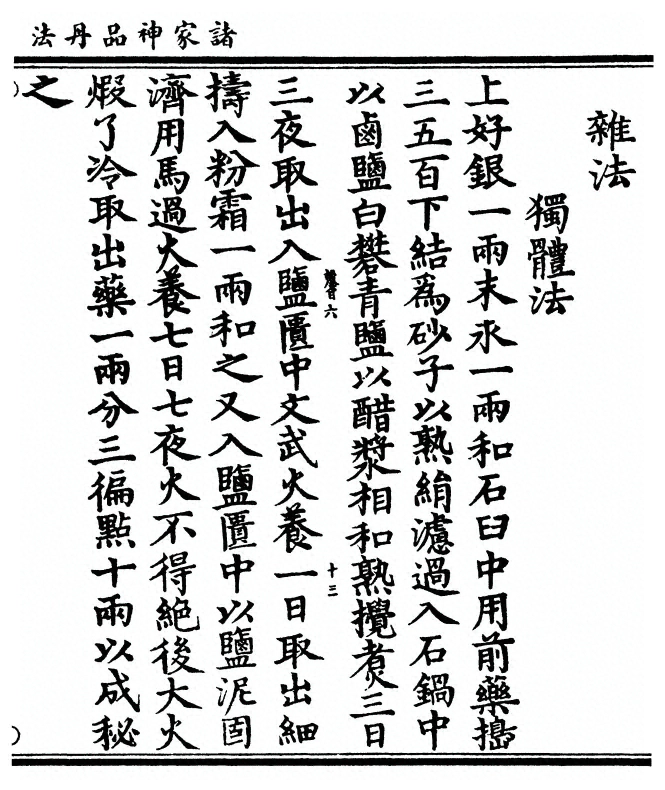 諸家神品丹法
雜法
獨體法
上好銀一兩末永一兩和石臼中用前藥搗
三五百下結爲砂子以熟絹濾過入石鍋中
以鹵鹽白礬青鹽以醋漿相和熟攪煮三日
六 十三
三夜取出入鹽匱中文武火養一日取出細
擣入粉霜一兩和之又入鹽匱中以鹽泥固
濟用馬過火養七日七夜火不得絕後大火
煆了冷取出藥一兩分三徧點十兩以成秘
之